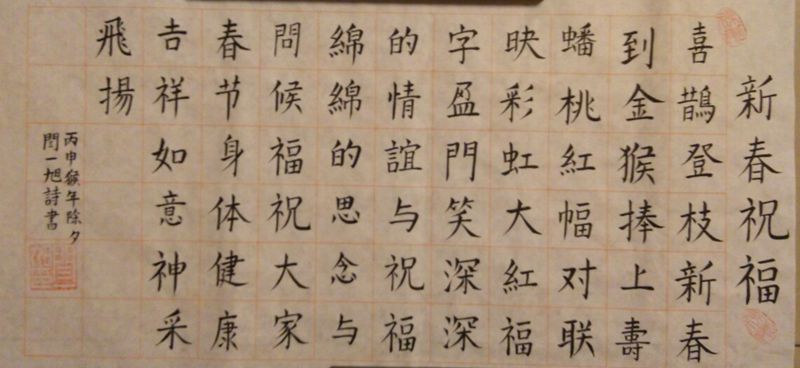 新春祝福
喜鵲登枝新春
到金猴捧上壽
蟠桃紅幅对联
映彩虹大紅福
字盈門笑深深
的情誼与祝福
綿綿的思念与
問候福祝大家
春节身体健康
吉祥如意神采
飛揚
丙申猴年除夕
閆一旭詩書